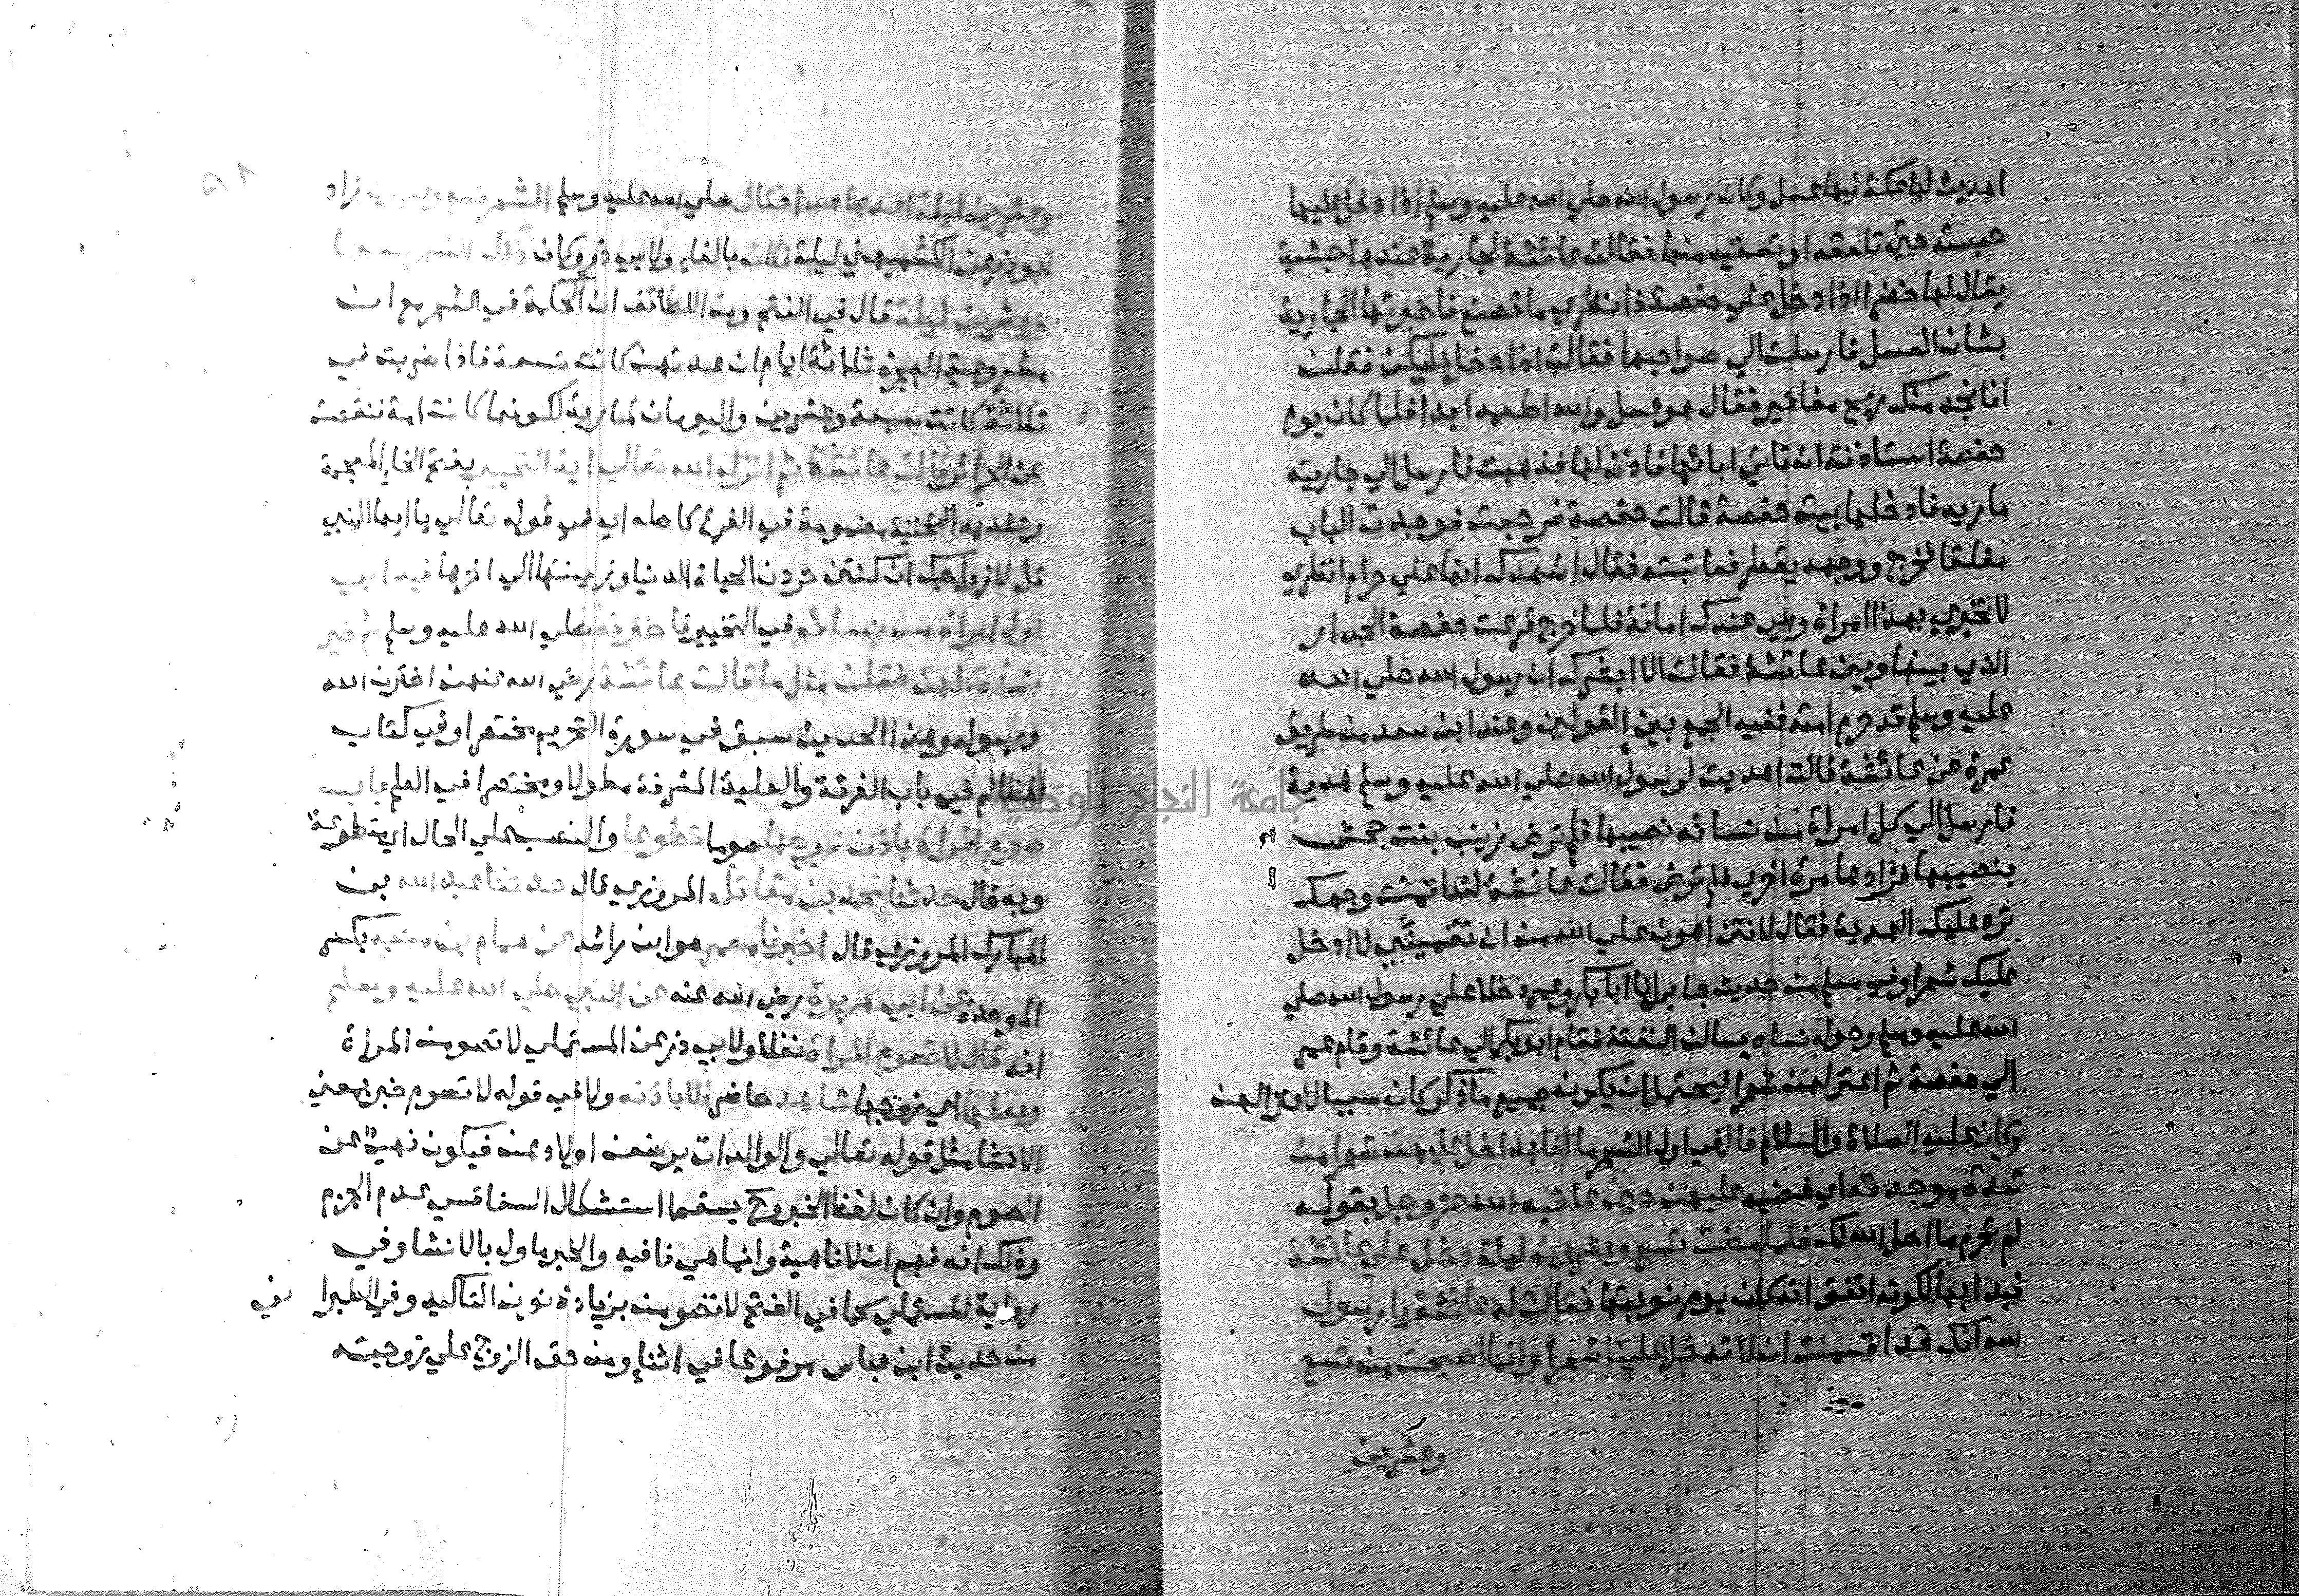 اهديت لها عكة فيها عسل وكان رسول الله صلي الله عليه وسلم اذا دخل عليها
حبسته حتي تلعقه او تسقيه منها فقالت عائشة لجارية عندها حبشية
يقال لها خضرا اذا دخل علي حفصة فانظري ما تصنع فاخبرتها الجارية
بشان العسل فارسلت الي صواحبها فقالت اذا دخل عليكن فقلن
انا نجد منك ريح مغافير فقال هو عسل والله لا اطعمه ابدا فلما كان يوم
حفصة استاذنته ان تاتي اباها فاذن لها فذهبت فارسل الي جاريته
مارية فادخلها بيت حفصة قالت حفصة فرجعت فوجدت الباب
مغلقا فخرج ووجهه يقطر فعاتبته فقال اشهدك انها علي حرام انظري
لا تخبري بهذا امراة وهي عندك امانة فلما خرج قرعت حفصة الجدار
الذي بينها وبين عائشة فقالت الا ابشرك ان رسول الله صلي الله
عليه وسلم قد حرم امته ففيه الجمع بين القولين وعند ابن سعد من طريق
عمرة عن عائشة قالت اهديت لرسول الله صلي الله عليه وسلم هدية
فارسل الي كل امراة من نسائه نصيبها فلم ترض زينب بنت جحش
بنصيبها فزادها مرة اخري فلم ترض فقالت عائشة لقد اقمت وجهك
ترد عليك الهدية فقال لانتن اهون علي الله من ان تقمئنني لا ادخل
عليكن شهرا وفي مسلم من حديث جابر ان ابا بكر وعمر دخلا علي رسول الله صلي
الله عليه وسلم وحوله نساه يسالن النفقة فقام ابو بكر الي عائشة وقام عمر
الي حفصة ثم اعتزلهن شهرا فيحتمل ان يكون جميع ما ذكر كان سببا لاعتزالهن
وكان عليه الصلاة والسلام قال في اول الشهر ما انا بداخل عليهن شهرا من
شدة موجدته اي غضبه عليهن حين عاتبه الله عز وجل بقوله
لم تحرم ما احل الله لك فلما مضت تسع وعشرون ليلة دخل علي عائشة
فبدا بها لكونه اتفق انه كان يوم نوبتها فقالت له عائشة يا رسول
الله انك قد اقسمت ان لا تدخل علينا شهرا وانما اصبحت من تسع
وعشرين
وعشرين ليلة اعدها عدا فقال صلي الله عليه وسلم الشهر تسع وعشرون زاد
ابو ذر عن الكشميهني ليلة فكان بالفاء ولابي ذر وكان ذلك الشهر تسعا
وعشرين ليلة قال في الفتح ومن اللطائف ان الحكمة في الشهر مع ان
مشروعية الهجر ثلاثة ايام ان عدتهن كانت تسعة فاذا ضربت في
ثلاثة كانت سبعة وعشرين واليومان لمارية لكونها كانت امة فنقصت
عن الحرائر قالت عائشة ثم انزل الله تعالي اية التخيير بفتح الخاء المعجمة
وتشديد التحتية مضمومة في الفرع كاصله اي في قوله تعالي يا ايها النبي
قل لازواجك ان كنتن تردن الحياة الدنيا وزينتها الي اخرها فبدا بي
اول امراة من نسائه في التخيير فاخترته صلي الله عليه وسلم ثم خير
نساه كلهن فقلن مثل ما قالت عائشة رضي الله عنهن اخترن الله
ورسوله وهذا الحديث سبق في سورة التحريم مختصرا وفي كتاب
المظالم في باب الغرفة والعلية المشرفة مطولا ومختصرا في العلم باب
صوم المراة باذن زوجها صوما تطوعا والنصب علي الحال اي متطوعة
وبه قال حدثنا محمد بن مقاتل المروزي قال حدثنا عبد الله بن
المبارك المروزي قال اخبرنا معمر هو ابن راشد عن همام بن منبه بكسر
الموحدة عن ابي هريرة رضي الله عنه عن النبي صلي الله عليه وسلم
انه قال لا تصوم المراة نفلا ولابي ذر عن المستملي لا تصومن المراة
وبعلها اي زوجها شاهد حاضر الا باذنه ولا في قوله لا تصوم خبر بمعني
الانشا مثل قوله تعالي والوالدات يرضعن اولادهن فيكون نهيا عن
الصوم وان كان لفظ الخبر وح يسقط استشكال السفاقسي عدم الجزم
وذلك انه فهم ان لا ناهية وانما هي نافيه والخبر ماول بالانشا وفي
رواية المستملي كما في الفتح لا تصومن بزيادة نون التاكيد وفي الطبراني
من حديث ابن عباس مرفوعا في اثناء ومن حق الزوج علي زوجته